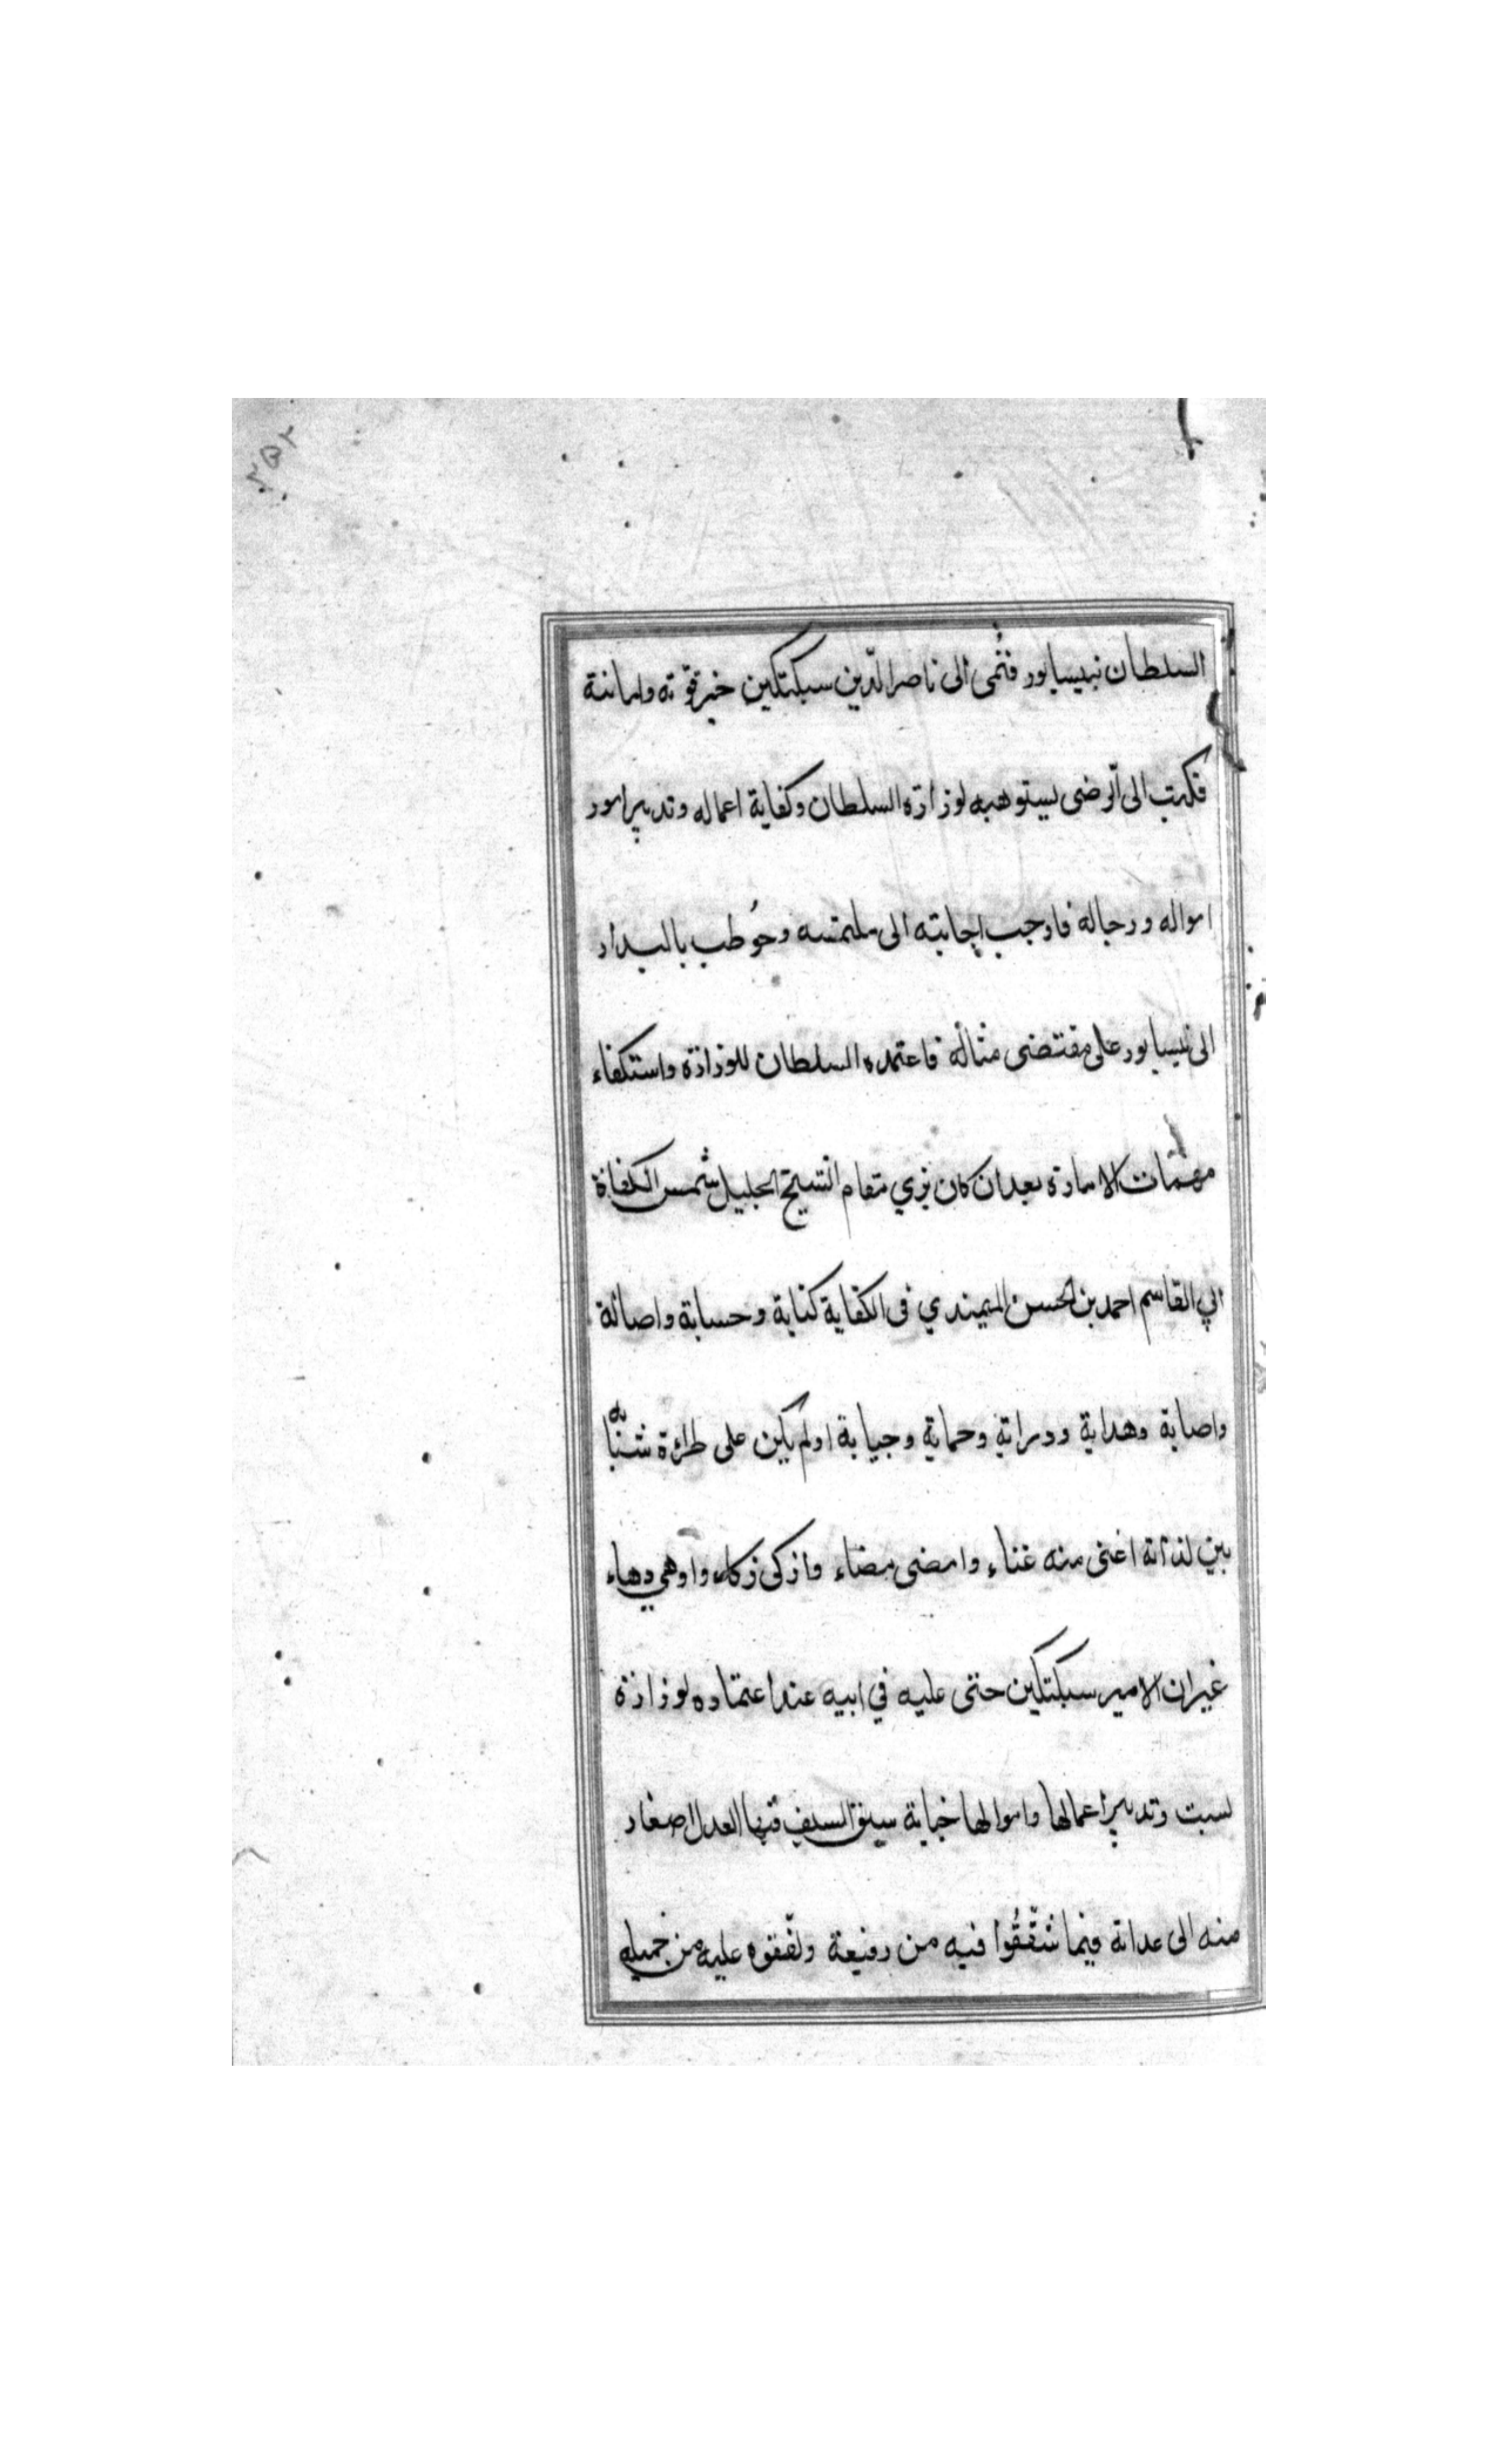 ٢٥٢
السلطان نبيسابور فنُمى الى ناصر الدّين سبكتكين خبر قوّته وامانة
فكتب الى الرضى يستوهبه لوزارة السلطان وكفاية اعماله وتدبير امور
امواله ورجاله فاوجب اجابته الى ملتمسه وخُوطب بالبدار
الى نيسابور على مقتضى مثاله فاعتمده السلطان للوزارة واستكفاء
مهمّات الامارة بعد ان كان يرى مقام الشيخ الجليل شمس الكفاة
ابي القاسم احمد بن الحسن الميمندي فى الكفاية كتابة وحسابة واصالة
واصابة وهداية ودراية وحماية وجباية اولم يكن على طراءة شبّابه
بين لداته اغنى منه غناء وامضى مضاء واذكى ذكاء وادهى دهاء
غير ان الامير سبكتكين حتى عليه في ابيه عند اعتماده لوزارة
لبست وتدبير اعمالها واموالها خباية سبق السيف فيها العدل اصغار
منه الى عداته فيما شقّقُوا فيه من رفيعة ولفّقوه عليه من جميله